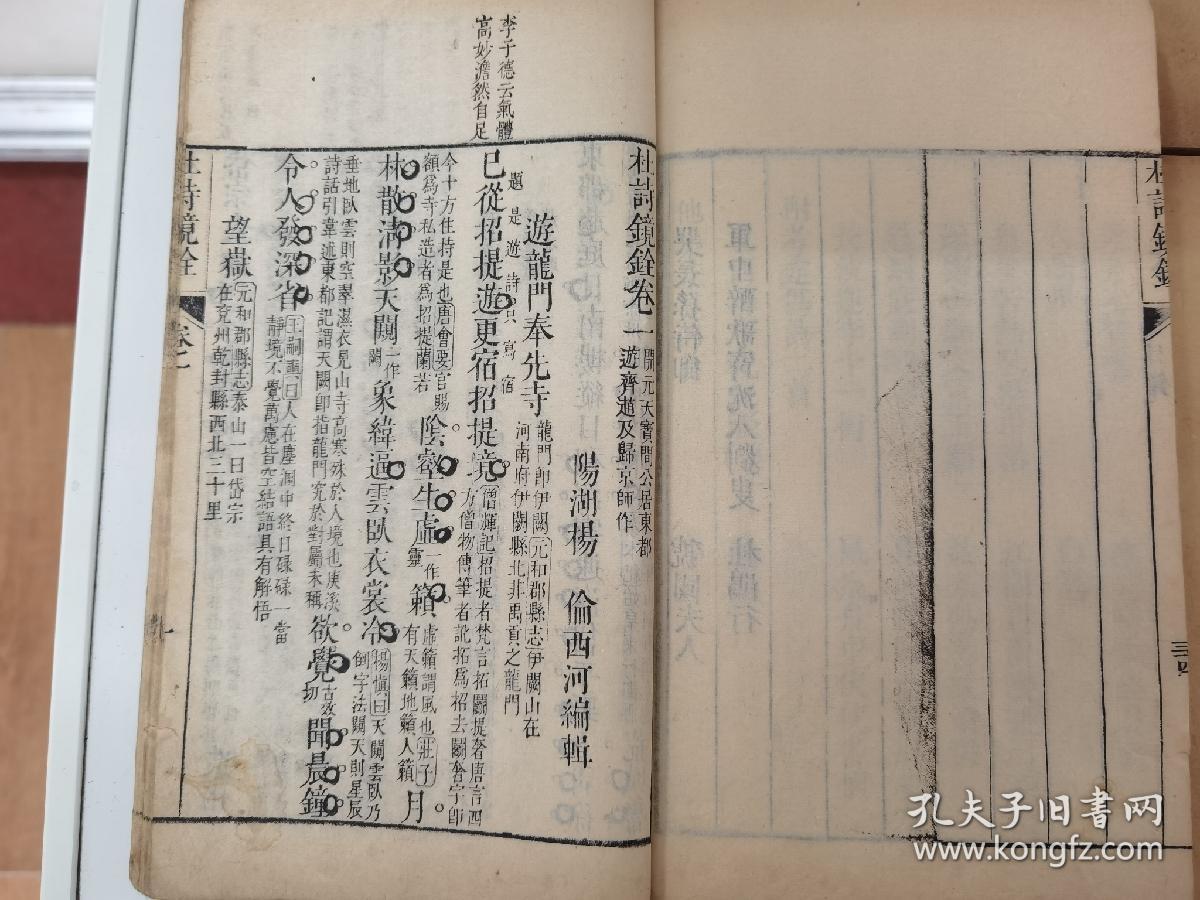 杜詩鏡銓卷一 開元天寶間公居東都遊齊趙及歸京師作
陽湖楊 倫西河編輯
遊龍門奉先寺 龍門即伊闕元和郡縣志伊闕山在河南府伊闕縣北非禹貢之龍門
題是遊詩只寫宿
已從招提遊更宿招提境 僧輝記招提者梵言拓鬭提奢唐言四方僧物傳筆者訛拓為招去鬭奢字即
今十方住持是也唐會要官賜額為寺私造者為招提蘭若 陰壑生虛 一作靈 籟 虛籟謂風也莊子有天籟地籟人籟 月
林散清影天闕 一作闚 象緯逼雲臥衣裳冷 楊慎曰天闚雲臥乃倒字法闚天則星辰
垂地臥雲則空翠濕衣見山寺高寒殊於人境也庚溪詩話引韋述東都記謂天闕即指龍門究於對屬未稱 欲覺 古效切 聞晨鐘
令人發深省 王嗣奭曰人在塵溷中終日碌碌一當靜境不覺萬慮皆空結語具有解悟
望嶽 元和郡縣志泰山一曰岱宗在兗州乾封縣西北三十里
李子德云氣體高妙澹然自足
杜詩鏡銓
卷一
一
杜詩鏡銓
孔夫子旧书网
www.kongfz.com